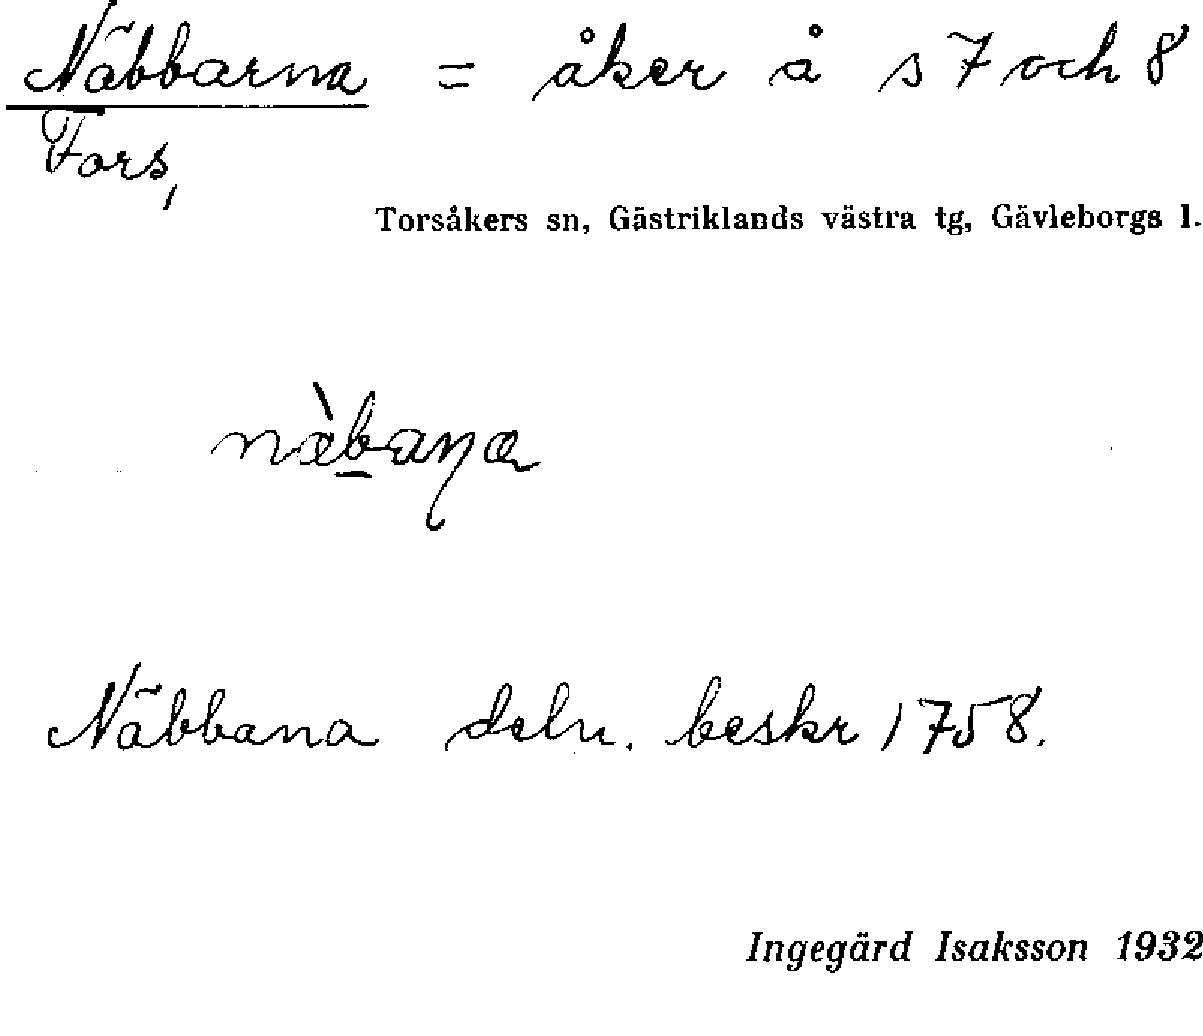 Näbbarna = åker å s 7 och 8
Fors,
Torsåkers sn, Gästriklands västra tg, Gävleborgs l.
næ̀b̲aŋa
Näbbana deln. beskr 1758.
Ingegärd Isaksson 1932